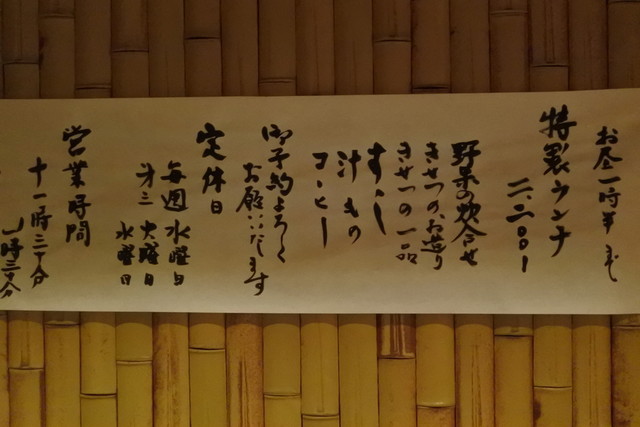 お昼一時半まで
特製ランチ
二二〇〇円
野菜の炊合せ
きせつのお造り
きせつの一品
すし
汁もの
コーヒー
御予約よろしく
お願いいたします
定休日
毎週水曜日
第三火曜日
水曜日
営業時間
十一時三十分
時三十分